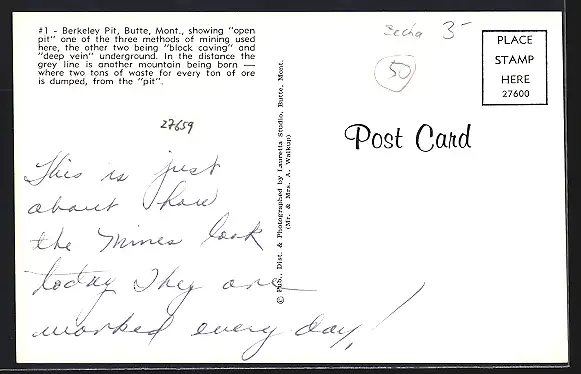 #1 - Berkeley Pit, Butte, Mont., showing "open
pit" one of the three methods of mining used
here, the other two being "block caving" and
"deep vein" underground. In the distance the
grey line is another mountain being born —
where two tons of waste for every ton of ore
is dumped, from the "pit".
27659
This is just
about how
the Mines look
today They are
worked every day!
© Pub., Dist. & Photographed by Lauretta Studio, Butte, Mont.
(Mr. & Mrs. A. Walkup)
3-
50
PLACE
STAMP
HERE
27600
Post Card